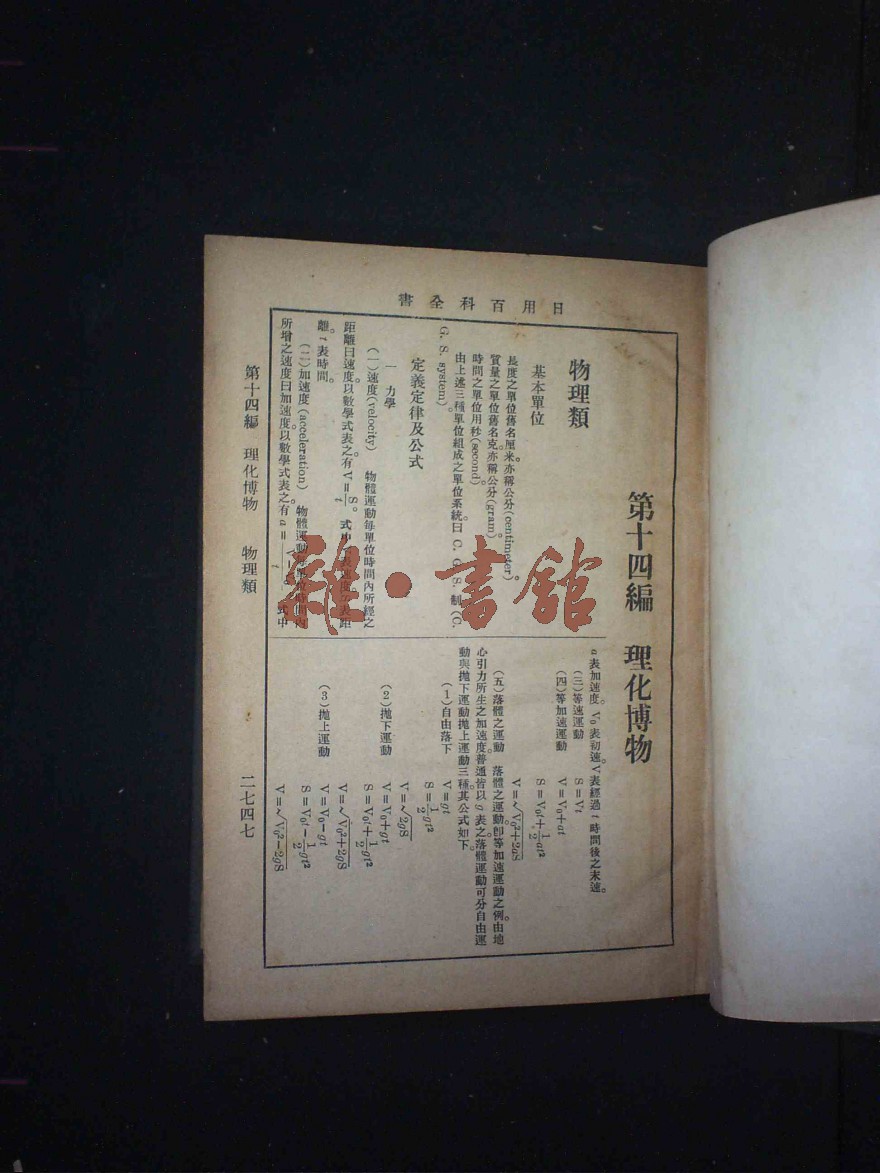 日用百科全書
第十四編 理化博物
物理類
基本單位
長度之單位舊名厘米亦稱公分(centimeter)。
質量之單位舊名克亦稱公分(gram)。
時間之單位用秒(second)。
由上述三種單位組成之單位系統曰 C. G. S. 制 (C.
G. S. system)。
定義定律及公式
一 力學
(一)速度(velocity) 物體運動每單位時間內所經之
距離曰速度。以數學式表之。有 V=S/t。式中 V 表速度。S 表距
離。t 表時間。
(二)加速度(acceleration) 物體運動每單位時間內
所增之速度曰加速度。以數學式表之。有 a= 式中
a 表加速度。V₀ 表初速。V 表經過 t 時間後之末速。
(三)等速運動 S=Vt
(四)等加速運動 V=V₀+at
S=V₀t+1/2 at²
V=√V₀²+2aS
(五)落體之運動 落體之運動。卽等加速運動之例。由地
心引力所生之加速度。普通皆以 g 表之。落體運動可分自由運
動與拋下運動拋上運動三種。其公式如下。
(1)自由落下 V=gt
S=1/2 gt²
V=√2gS
(2)拋下運動 V=V₀+gt
S=V₀t+1/2 gt²
V=√V₀²+2gS
(3)拋上運動 V=V₀-gt
S=V₀t-1/2 gt²
V=√V₀²-2gS
第十四編 理化博物 物理類 二七四七
雜·書館